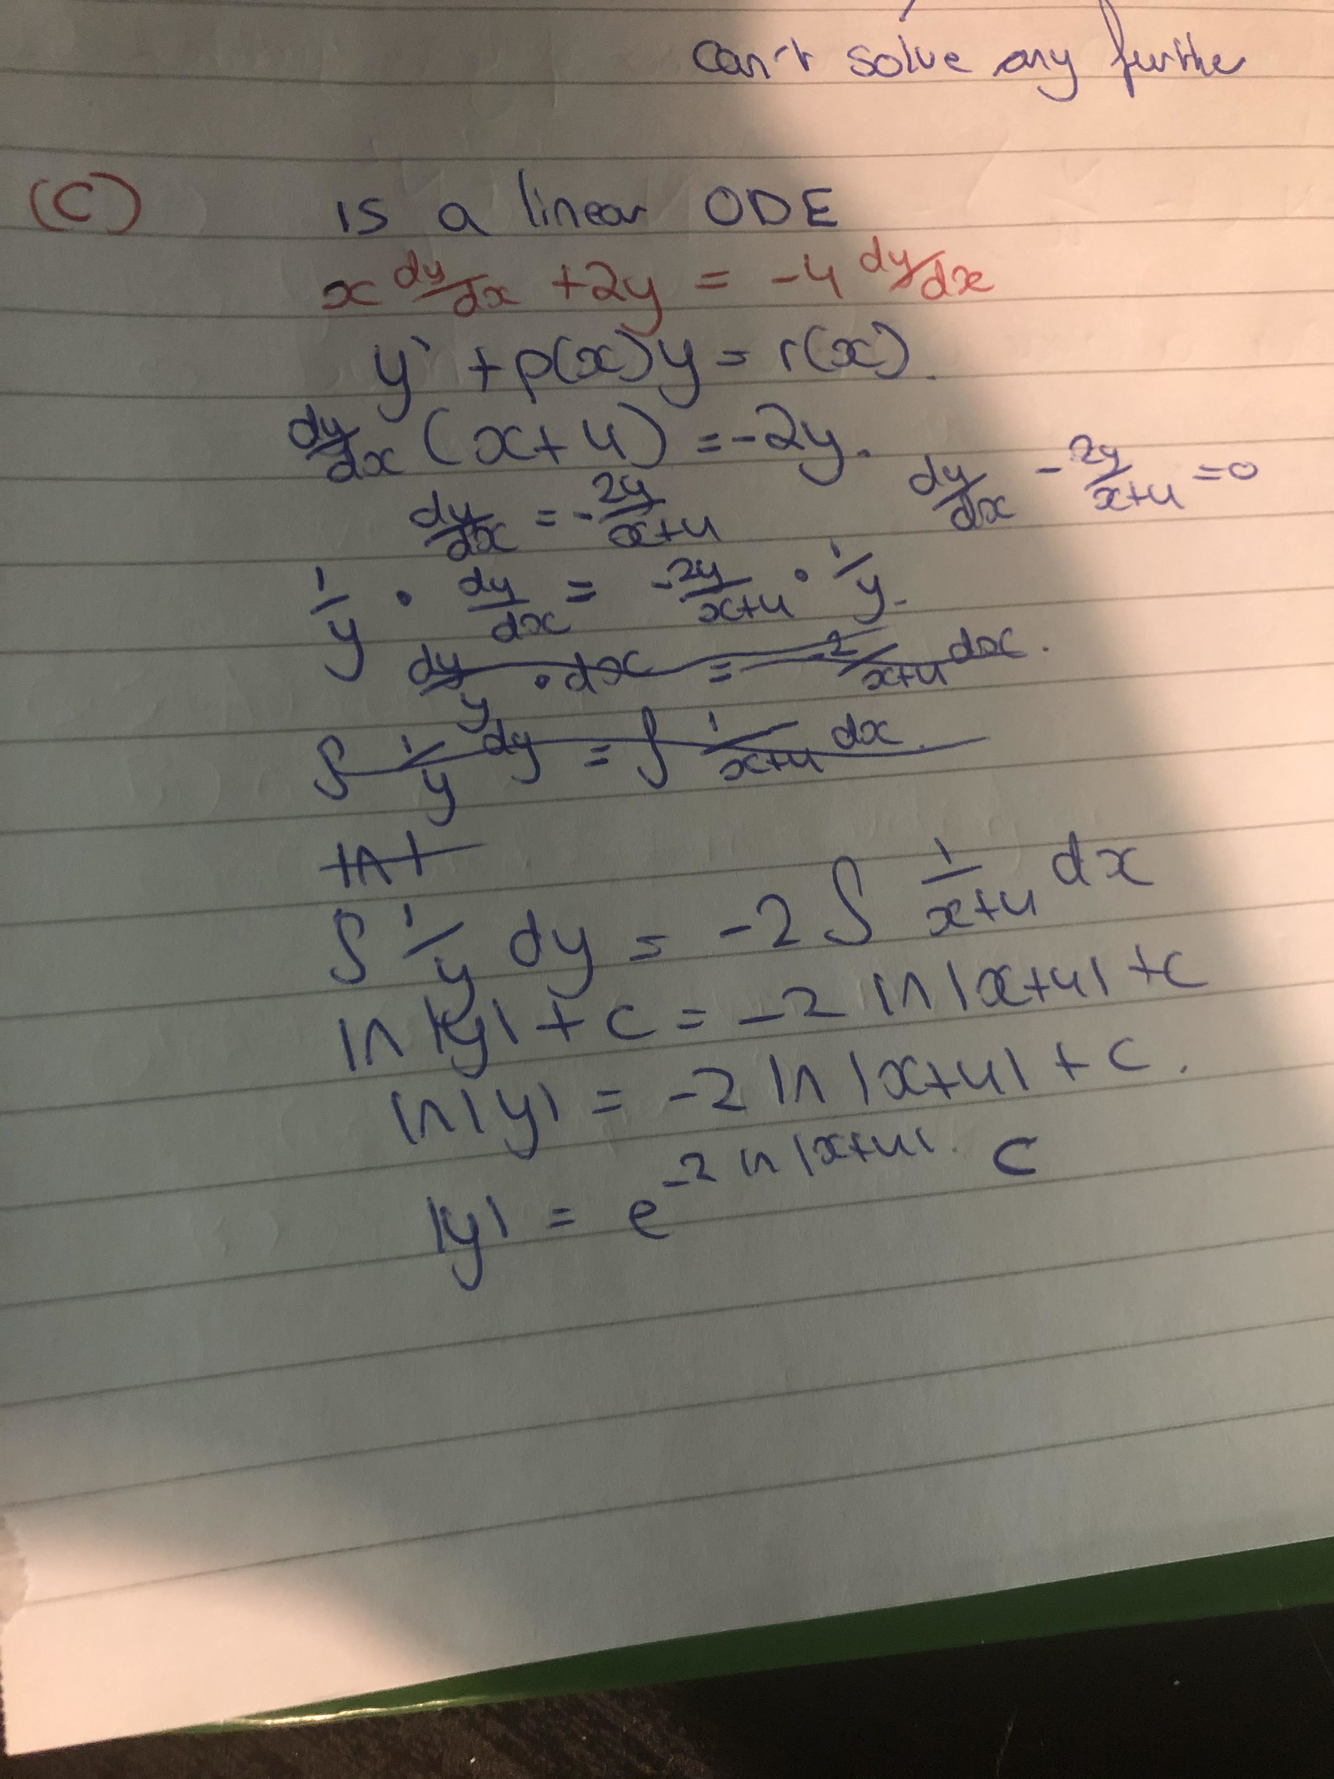 can't solve any further
(C) is a linear ODE
x dy/dx +2y = -4 dy/dx
y' + p(x)y = r(x).
dy/dx (x+4) = -2y.
dy/dx = -2y/x+4 dy/dx - 2y/x+4 = 0
1/y • dy/dx = -2y/x+4 • 1/y.
dy/y • dx = -2/x+4 dx.
∫ 1/y dy = ∫ 1/x+4 dx.
∫ 1/y dy = -2 ∫ 1/x+4 dx
ln |y| + c = -2 ln |x+4| + c
ln |y| = -2 ln |x+4| + c.
|y| = e^-2 ln |x+4|. C